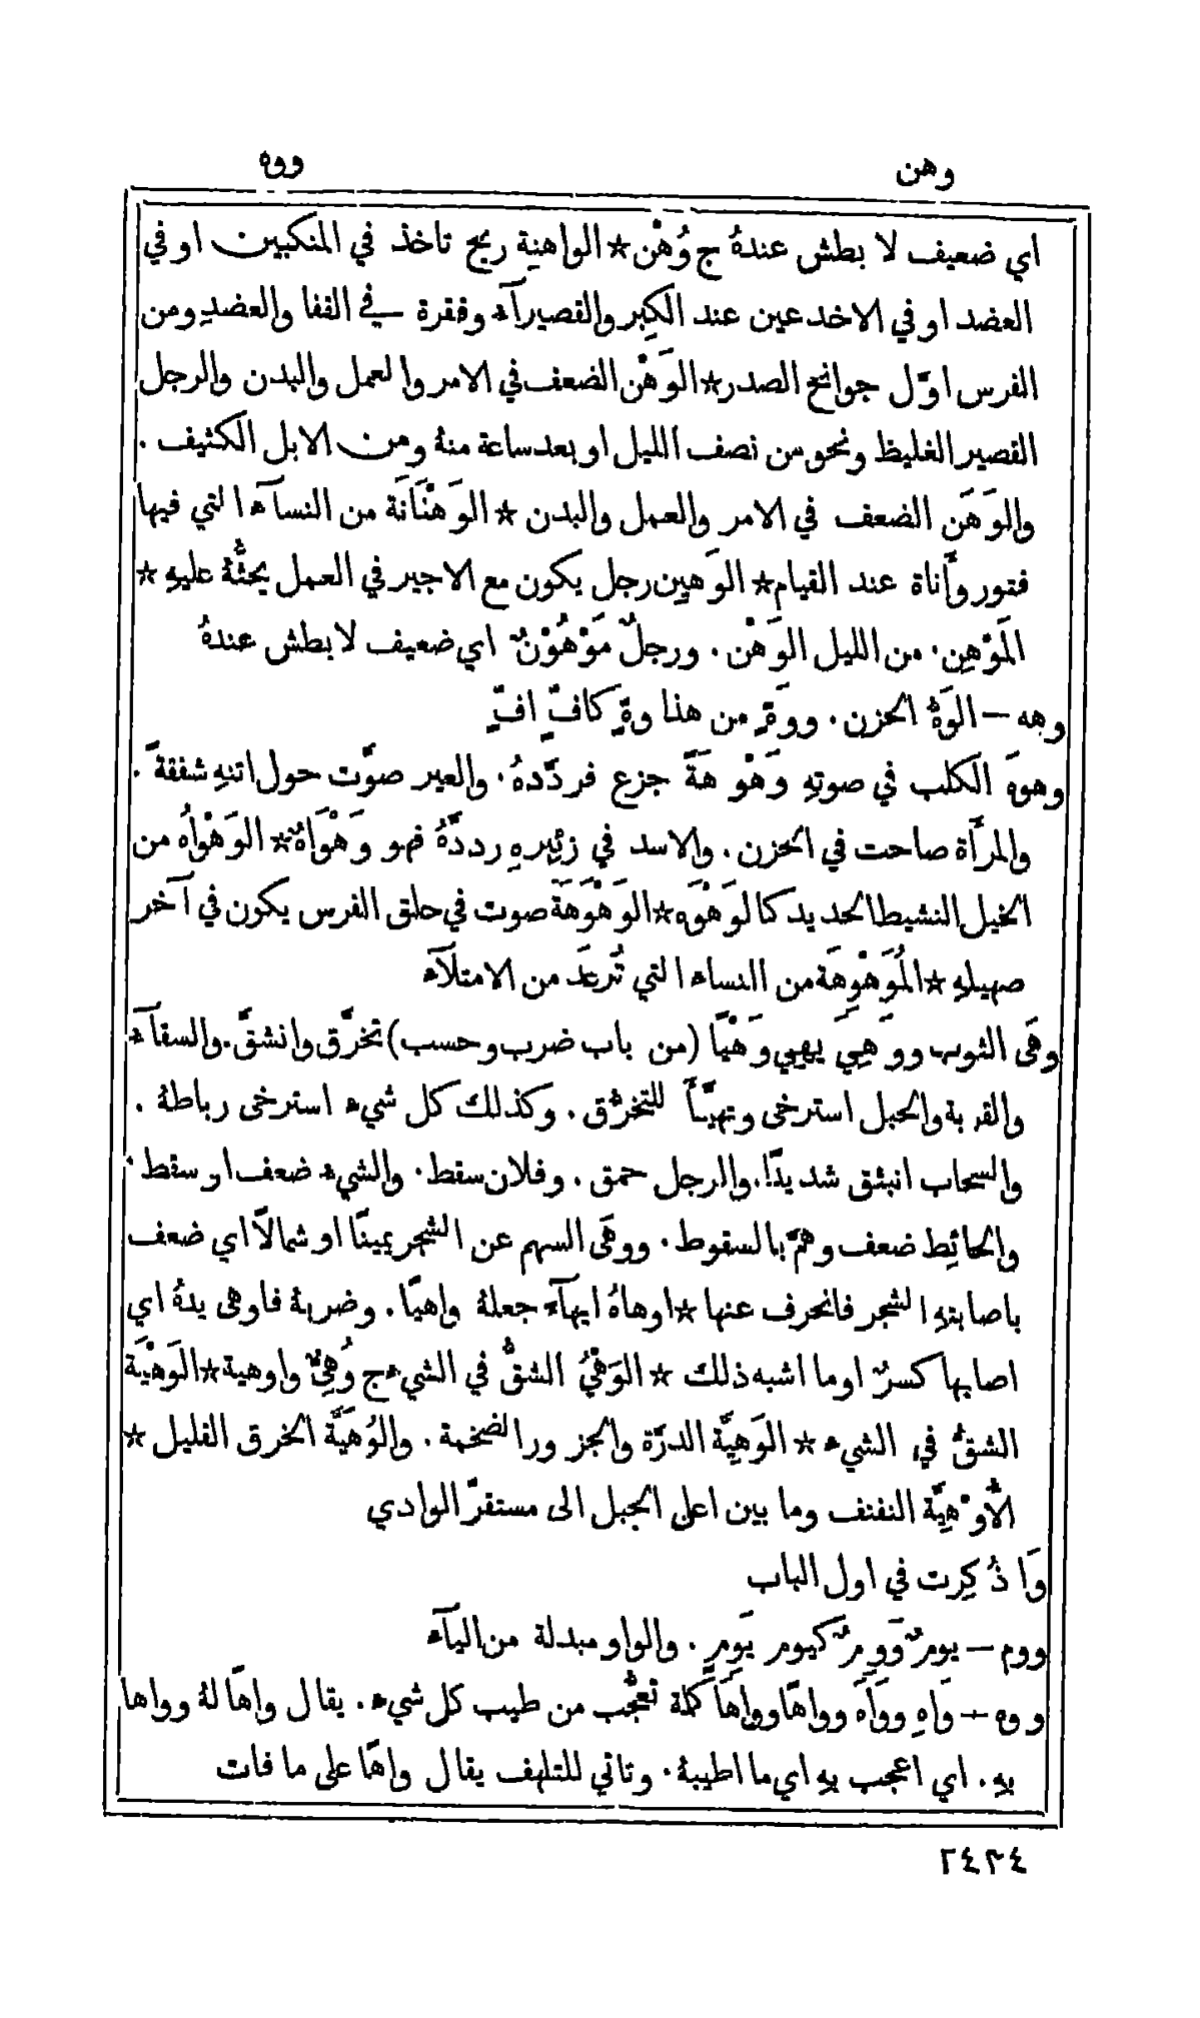 وهن
ووه
اي ضعيف لا بطش عندهُ ج وُهْن ☆ الواهنة ريح تاخذ في المنكبين او في
العضد او في الاخدعين عند الكِبر والقصيرآء وفقرة في القفا والعضدِ ومن
الفرس اوَّل جوانح الصدر ☆ الوَهْن الضعف في الامر والعمل والبدن والرجل
القصير الغليظ ونحو من نصف الليل او بعد ساعة منهُ ومن الابل الكثيف .
والوَهَن الضعف في الامر والعمل والبدن ☆ الوَهْنَانَة من النسآء التي فيها
فتور وأَناة عند القيام ☆ الوَهِين رجل يكون مع الاجير في العمل يحثُّهُ عليهِ ☆
المَوْهِن . من الليل الوَهْن . ورجلٌ مَوْهُوْنٌ اي ضعيف لا بطش عندهُ
وهه — الوَهُّ الحزن . ووَهٍ من هذا وهٍّ كافٍّ افٍّ
وهوهَ الكلب في صوتهِ وَهْوَهَةً جزع فردَّدهُ . والعير صوَّت حول اتنهِ شفقةً .
والمرأَة صاحت في الحزن . والاسد في زئيرهِ رددَّهُ فهو وَهْوَاهٌ ☆ الوَهْواهُ من
الخيل النشيط الحديد كالوَهْوَه ☆ الوَهْوَهَة صوت في حلق الفرس يكون في آخر
صهيلهِ ☆ المُوَهْوِهَة من النساء التي تُرعَد من الامتلآء
وهَى الثوب ووَهِيَ يهِي وَهْيًا (من باب ضرب وحسب) تخرَّق وانشقَّ . والسقآء
والقربة والحبل استرخى وتهيَّأَ للتخرُّق . وكذلك كل شيء استرخى رباطهُ .
والسحاب انبثق شديدًا . والرجل حمق . وفلان سقط . والشيء ضعف او سقط .
والحائِط ضعف وهمَّ بالسقوط . ووهَى السهم عن الشجر يمينًا او شمالاً اي ضعف
باصابتهِ الشجر فانحرف عنها ☆ اوهاهُ ايهآء جعلهُ واهيًا . وضربهُ فاوهى يدهُ اي
اصابها كسرٌ او ما اشبه ذلك ☆ الوَهْيُ الشقُّ في الشيء ج وُهِيٌّ واوهية ☆ الوَهْيَة
الشقُّ في الشيء ☆ الوَهِيَّة الدرَّة والجزور الضخمة . والوُهَيَّة الخرق القليل ☆
الأُوْهِيَّة النفنف وما بين اعلى الجبل الى مستقرّ الوادي
وَا ذُكِرت في اول الباب
ووم — يومٌ وَوِمٌ كيوم يَوِم . والواو مبدلة من اليآء
ووه — وَاهِ ووَاهَ وواهًا وواهَا كلمة تعجُّب من طيب كل شيء . يقال واهًا لهُ وواها
بهِ . اي اعجب بهِ اي ما اطيبهُ . وتاتي للتلهف يقال واهًا على ما فات
٢٤٣٤